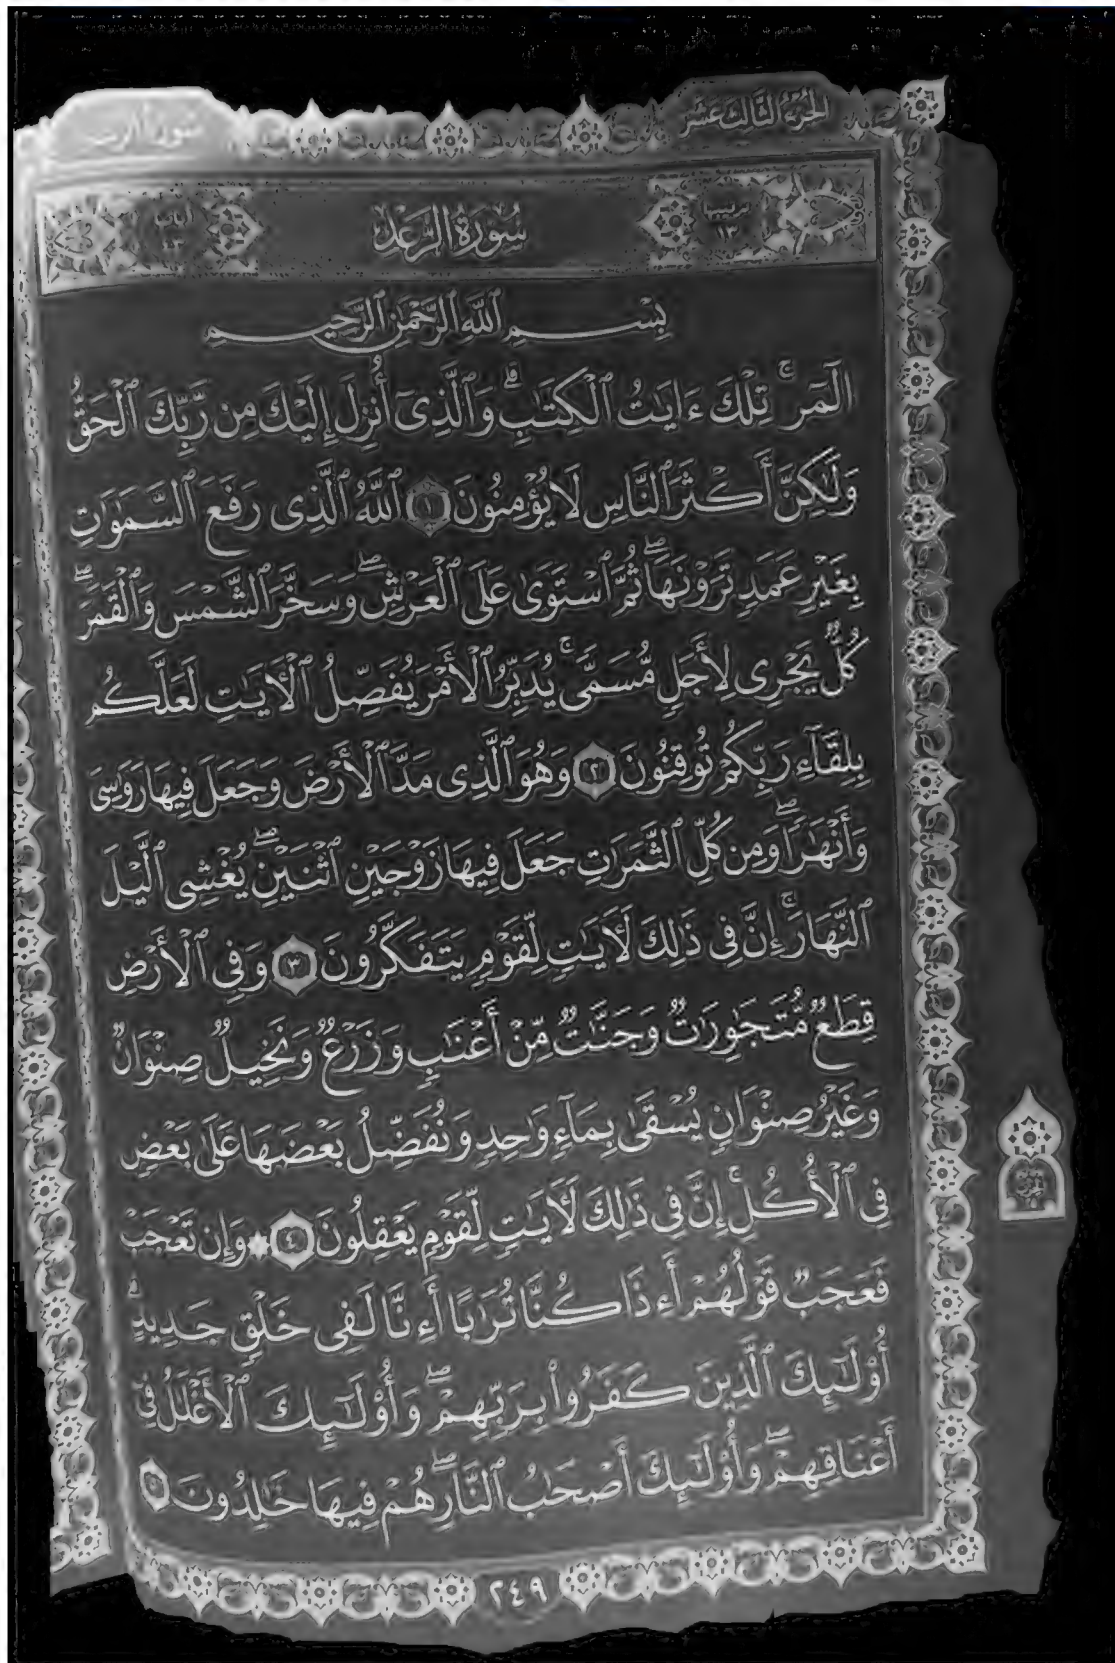 الجُزْءُ الثَّالِثَ عَشَرَ
سُورَةُ الرَّعْدِ
ترتيبها ١٣
سُورَةُ الرَّعْدِ
آياتها ٤٣
بِسْمِ ٱللَّهِ ٱلرَّحْمَٰنِ ٱلرَّحِيمِ
الٓمٓر ۚ تِلْكَ ءَايَٰتُ ٱلْكِتَٰبِ ۗ وَٱلَّذِىٓ أُنزِلَ إِلَيْكَ مِن رَّبِّكَ ٱلْحَقُّ
وَلَٰكِنَّ أَكْثَرَ ٱلنَّاسِ لَا يُؤْمِنُونَ ١ ٱللَّهُ ٱلَّذِى رَفَعَ ٱلسَّمَٰوَٰتِ
بِغَيْرِ عَمَدٍ تَرَوْنَهَا ۖ ثُمَّ ٱسْتَوَىٰ عَلَى ٱلْعَرْشِ ۖ وَسَخَّرَ ٱلشَّمْسَ وَٱلْقَمَرَ ۖ
كُلٌّ يَجْرِى لِأَجَلٍ مُّسَمًّى ۚ يُدَبِّرُ ٱلْأَمْرَ يُفَصِّلُ ٱلْءَايَٰتِ لَعَلَّكُم
بِلِقَآءِ رَبِّكُمْ تُوقِنُونَ ٢ وَهُوَ ٱلَّذِى مَدَّ ٱلْأَرْضَ وَجَعَلَ فِيهَا رَوَٰسِىَ
وَأَنْهَٰرًا ۖ وَمِن كُلِّ ٱلثَّمَرَٰتِ جَعَلَ فِيهَا زَوْجَيْنِ ٱثْنَيْنِ ۖ يُغْشِى ٱلَّيْلَ
ٱلنَّهَارَ ۚ إِنَّ فِى ذَٰلِكَ لَءَايَٰتٍ لِّقَوْمٍ يَتَفَكَّرُونَ ٣ وَفِى ٱلْأَرْضِ
قِطَعٌ مُّتَجَٰوِرَٰتٌ وَجَنَّٰتٌ مِّنْ أَعْنَٰبٍ وَزَرْعٌ وَنَخِيلٌ صِنْوَانٌ
وَغَيْرُ صِنْوَانٍ يُسْقَىٰ بِمَآءٍ وَٰحِدٍ وَنُفَضِّلُ بَعْضَهَا عَلَىٰ بَعْضٍ
فِى ٱلْأُكُلِ ۚ إِنَّ فِى ذَٰلِكَ لَءَايَٰتٍ لِّقَوْمٍ يَعْقِلُونَ ٤ ۞ وَإِن تَعْجَبْ
فَعَجَبٌ قَوْلُهُمْ أَءِذَا كُنَّا تُرَٰبًا أَءِنَّا لَفِى خَلْقٍ جَدِيدٍ ۗ
أُو۟لَٰٓئِكَ ٱلَّذِينَ كَفَرُوا۟ بِرَبِّهِمْ ۖ وَأُو۟لَٰٓئِكَ ٱلْأَغْلَٰلُ فِىٓ
أَعْنَاقِهِمْ ۖ وَأُو۟لَٰٓئِكَ أَصْحَٰبُ ٱلنَّارِ ۖ هُمْ فِيهَا خَٰلِدُونَ ٥
٢٤٩